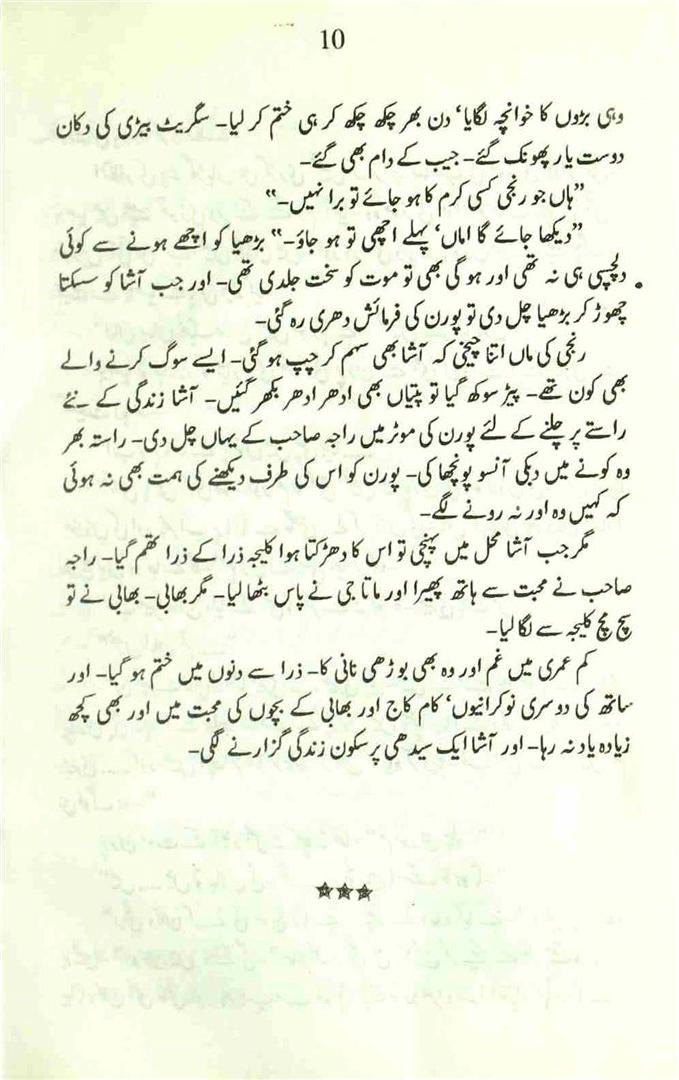 10
وہی بڑوں کا خوانچہ لگایا، دن بھر چکھ چکھ کر ہی ختم کر لیا۔ سگریٹ بیڑی کی دکان
دوست یار پھونک گئے۔ جیب کے دام بھی گئے۔
”ہاں جو رنجی کسی کرم کا ہو جائے تو برا نہیں۔“
”دیکھا جائے گا اماں، پہلے اچھی تو ہو جاؤ۔“ بڑھیا کو اچھے ہونے سے کوئی
دلچسپی ہی نہ تھی اور ہوگی بھی تو موت کو سخت جلدی تھی۔ اور جب آشا کو سسکتا
چھوڑ کر بڑھیا چل دی تو پورن کی فرمائش دھری رہ گئی۔
رنجی کی ماں اتنا چیخی کہ آشا بھی سہم کر چپ ہو گئی۔ ایسے سوگ کرنے والے
بھی کون تھے۔ پیڑ سوکھ گیا تو پتیاں بھی ادھر ادھر بکھر گئیں۔ آشا زندگی کے نئے
راستے پر چلنے کے لئے پورن کی موٹر میں راجہ صاحب کے یہاں چل دی۔ راستہ بھر
وہ کونے میں دبکی آنسو پونچھا کی۔ پورن کو اس کی طرف دیکھنے کی ہمت بھی نہ ہوئی
کہ کہیں وہ اور نہ رونے لگے۔
مگر جب آشا محل میں پہنچی تو اس کا دھڑکتا ہوا کلیجہ ذرا کے ذرا تھم گیا۔ راجہ
صاحب نے محبت سے ہاتھ پھیرا اور ماتا جی نے پاس بٹھا لیا۔ مگر بھابی۔ بھابی نے تو
سچ مچ کلیجہ سے لگا لیا۔
کم عمری میں غم اور وہ بھی بوڑھی نانی کا۔ ذرا سے دنوں میں ختم ہو گیا۔ اور
ساتھ کی دوسری نوکرانیوں، کام کاج اور بھابی کے بچوں کی محبت میں اور بھی کچھ
زیادہ یاد نہ رہا۔ اور آشا ایک سیدھی پرسکون زندگی گزارنے لگی۔
★★★